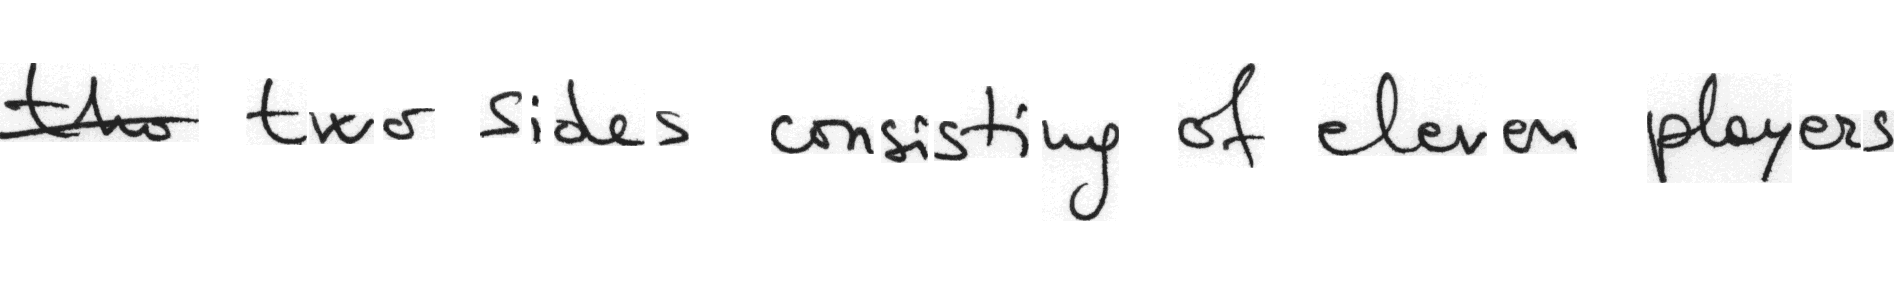 two sides consisting of eleven players